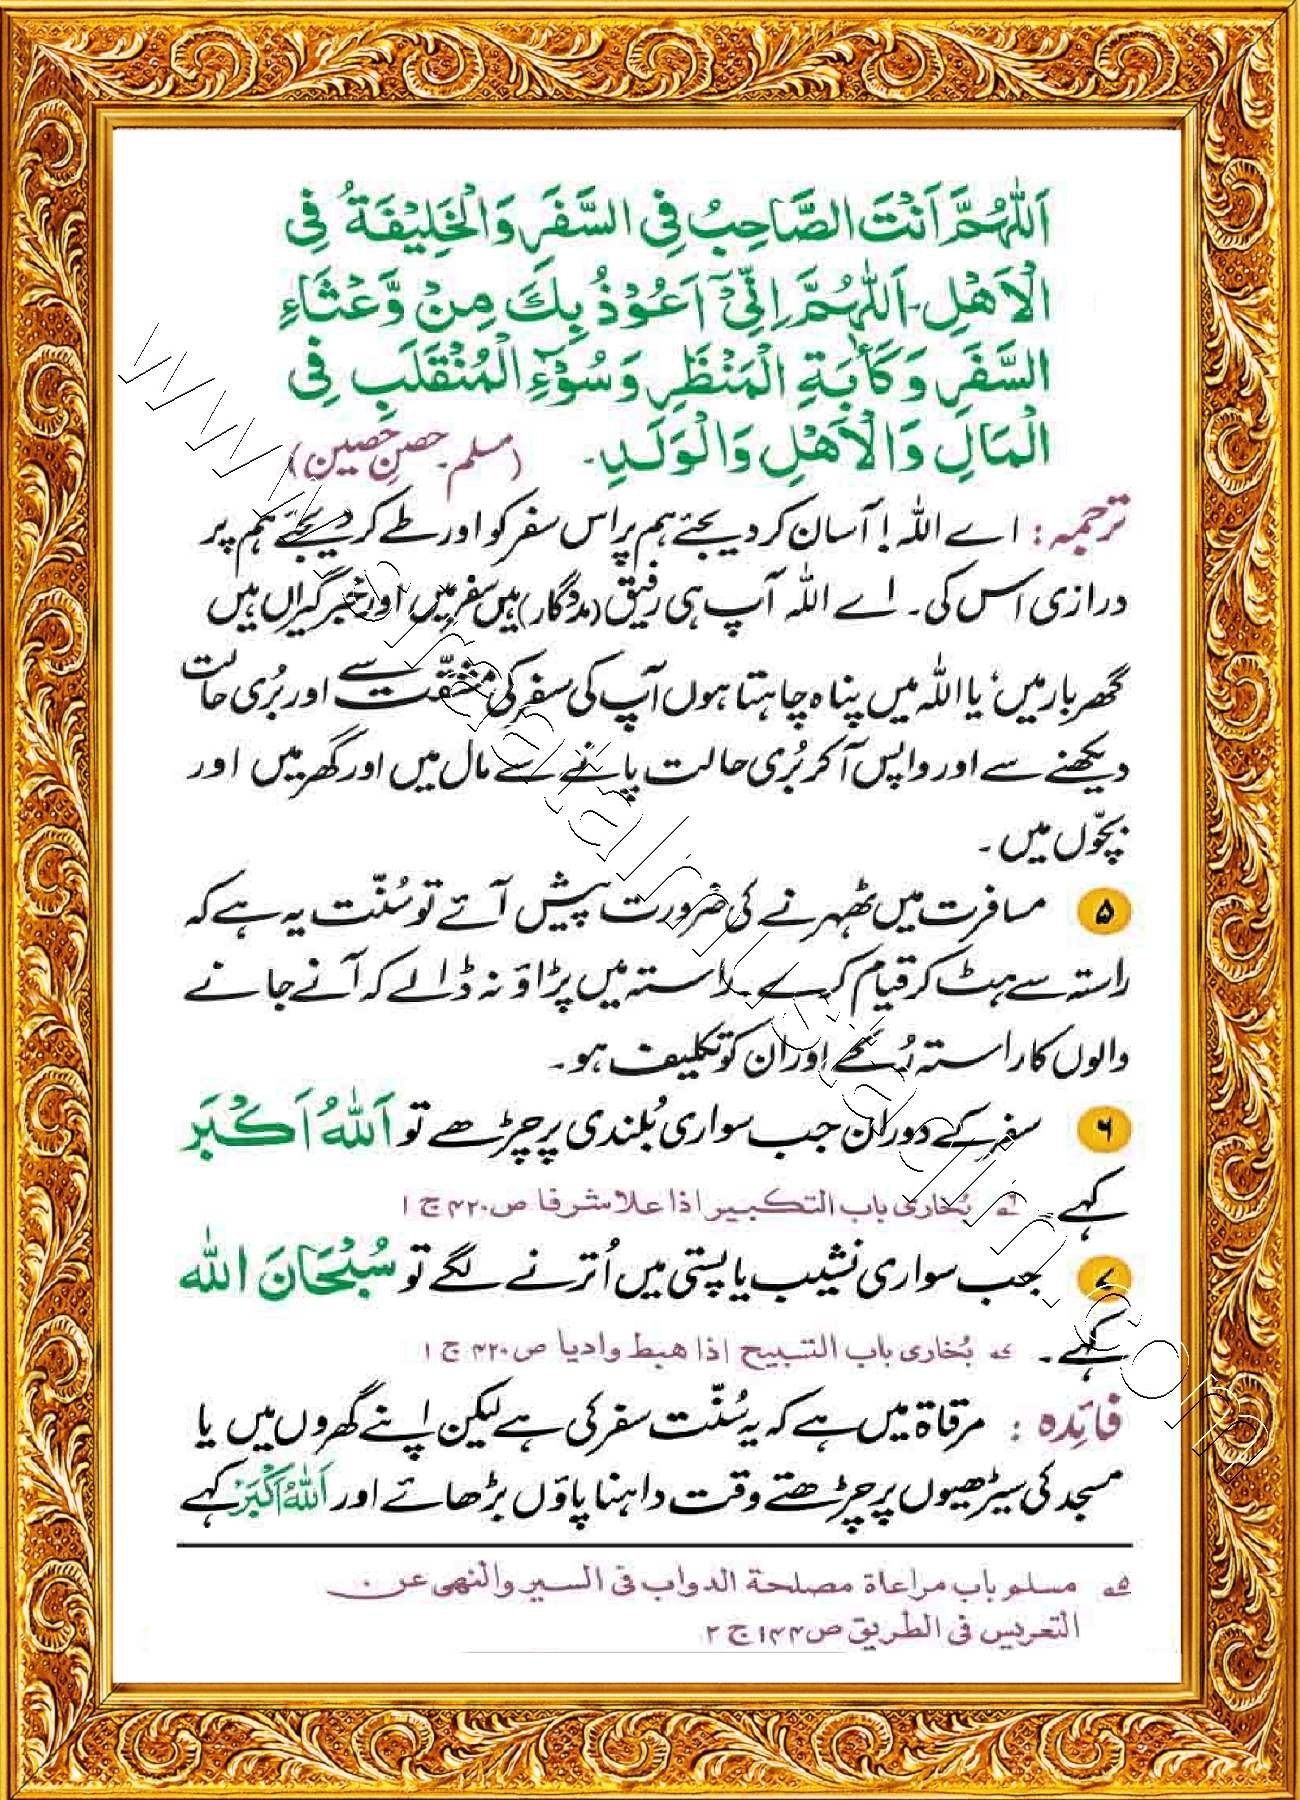 اَللّٰهُمَّ اَنْتَ الصَّاحِبُ فِی السَّفَرِ وَالْخَلِیْفَةُ فِی
الْاَهْلِ۔ اَللّٰهُمَّ اِنِّیْٓ اَعُوْذُ بِكَ مِنْ وَّعْثَاءِ
السَّفَرِ وَكَاٰبَةِ الْمَنْظَرِ وَسُوْٓءِ الْمُنْقَلَبِ فِی
الْمَالِ وَالْاَهْلِ وَالْوَلَدِ۔ (مسلم۔ حصنِ حصین)
ترجمہ: اے اللہ! آسان کر دیجئے ہم پر اس سفر کو اور طے کر دیجئے ہم پر
درازی اس کی۔ اے اللہ آپ ہی رفیق (مددگار) ہیں سفر میں، اور خبر گیراں ہیں
گھر بار میں، یا اللہ میں پناہ چاہتا ہوں آپ کی سفر کی مشقّت سے اور بُری حالت
دیکھنے سے اور واپس آ کر بُری حالت پانے سے مال میں اور گھر میں اور
بچّوں میں۔
۵ مسافرت میں ٹھہرنے کی ضرورت پیش آئے تو سُنّت یہ ہے کہ
راستہ سے ہٹ کر قیام کرے۔ راستہ میں پڑاؤ نہ ڈالے کہ آنے جانے
والوں کا راستہ رُکے اور ان کو تکلیف ہو۔
۶ سفر کے دوران جب سواری بُلندی پر چڑھے تو اَللّٰهُ اَكْبَر
کہے۔ ۶ بُخاری باب التکبیر اذا علا شرفا ص ۴۲۰ ج ۱
۷ جب سواری نشیب یا پستی میں اُترنے لگے تو سُبْحَانَ اللّٰه
کہے۔ ۷ بُخاری باب التسبیح اذا هبط وادیا ص ۴۲۰ ج ۱
فائدہ: مرقاۃ میں ہے کہ یہ سُنّت سفر کی ہے لیکن اپنے گھروں میں یا
مسجد کی سیڑھیوں پر چڑھتے وقت داہنا پاؤں بڑھائے اور اَللّٰهُ اَكْبَر کہے
۵ مسلم باب مراعاة مصلحة الدواب فی السیر والنهی عن
التعریس فی الطریق ص ۱۴۴ ج ۲